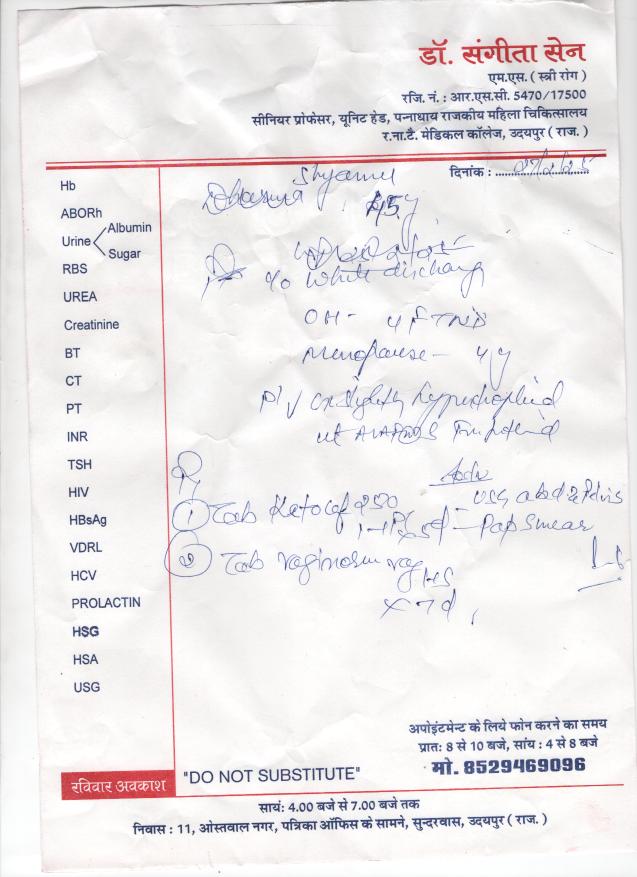 डॉ. संगीता सेन
एम.एस. ( स्त्री रोग )
रजि. नं. : आर.एस.सी. 5470/17500
सीनियर प्रोफेसर, यूनिट हेड, पन्नाधाय राजकीय महिला चिकित्सालय
र.ना.टै. मेडिकल कॉलेज, उदयपुर ( राज. )
दिनांक :
Hb
ABORh
Urine Albumin
Sugar
RBS
UREA
Creatinine
BT
CT
PT
INR
TSH
HIV
HBsAg
VDRL
HCV
PROLACTIN
HSG
HSA
USG
45y
c/o White discharge
OH - 4 FTND
Menopause - 4y
P/V Cx slightly hypertrophied
Adv
- USG abd & Pelvis
- Pap Smear
① Tab 250
② Tab vag
HS
x 7d
अपोइंटमेन्ट के लिये फोन करने का समय
प्रातः 8 से 10 बजे, सांय : 4 से 8 बजे
मो. 8529469096
रविवार अवकाश
"DO NOT SUBSTITUTE"
सायं: 4.00 बजे से 7.00 बजे तक
निवास : 11, ओस्तवाल नगर, पत्रिका ऑफिस के सामने, सुन्दरवास, उदयपुर ( राज. )